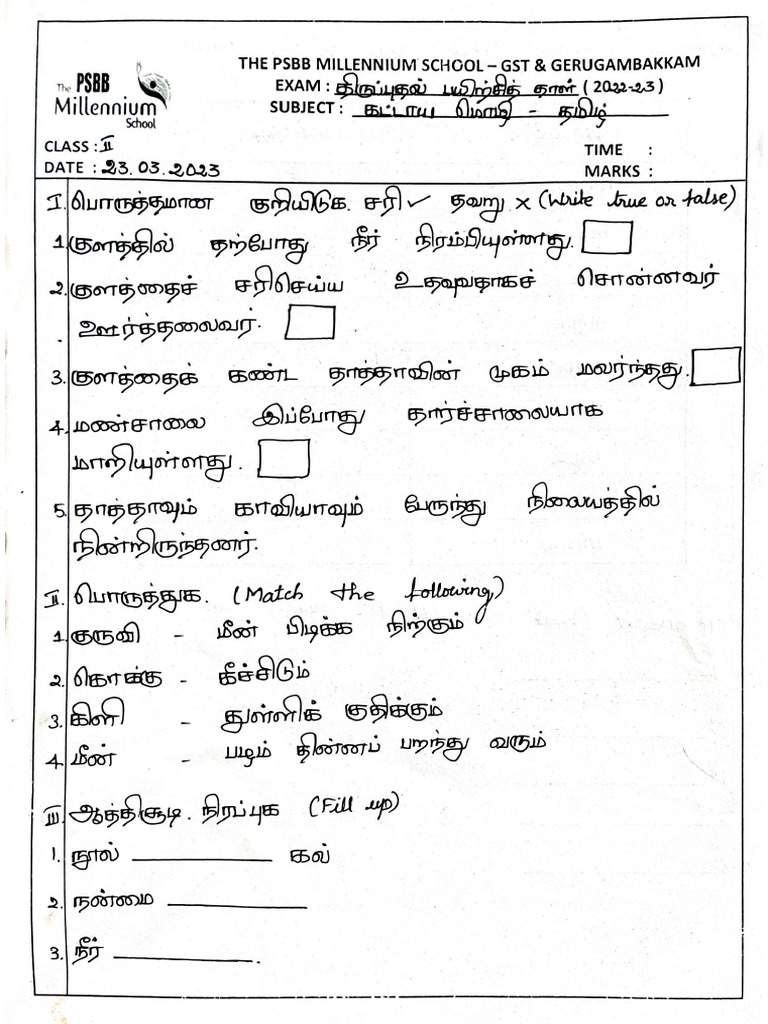 THE PSBB MILLENNIUM SCHOOL – GST & GERUGAMBAKKAM
The PSBB Millennium School
EXAM : திருப்புதல் பயிற்சித் தாள் (2022-23)
SUBJECT : கட்டாய மொழி - தமிழ்
CLASS : II TIME :
DATE : 23.03.2023 MARKS :
I. பொருத்தமான குறியிடுக. சரி ✓ தவறு x (Write true or false)
1. குளத்தில் தற்போது நீர் நிரம்பியுள்ளது.
2. குளத்தைச் சரிசெய்ய உதவுவதாகச் சொன்னவர்
ஊர்த்தலைவர்.
3. குளத்தைக் கண்ட தாத்தாவின் முகம் மலர்ந்தது.
4. மண்சாலை இப்போது தார்ச்சாலையாக
மாறியுள்ளது.
5. தாத்தாவும் காவியாவும் பேருந்து நிலையத்தில்
நின்றிருந்தனர்.
II. பொருத்துக. (Match the following)
1. குருவி - மீன் பிடிக்க நிற்கும்
2. கொக்கு - கீச்சிடும்
3. கிளி - துள்ளிக் குதிக்கும்
4. மீன் - பழம் தின்னப் பறந்து வரும்
III. ஆத்திசூடி. நிரப்புக (Fill up)
1. நூல் __________ கல்
2. நன்மை __________
3. நீர் __________.